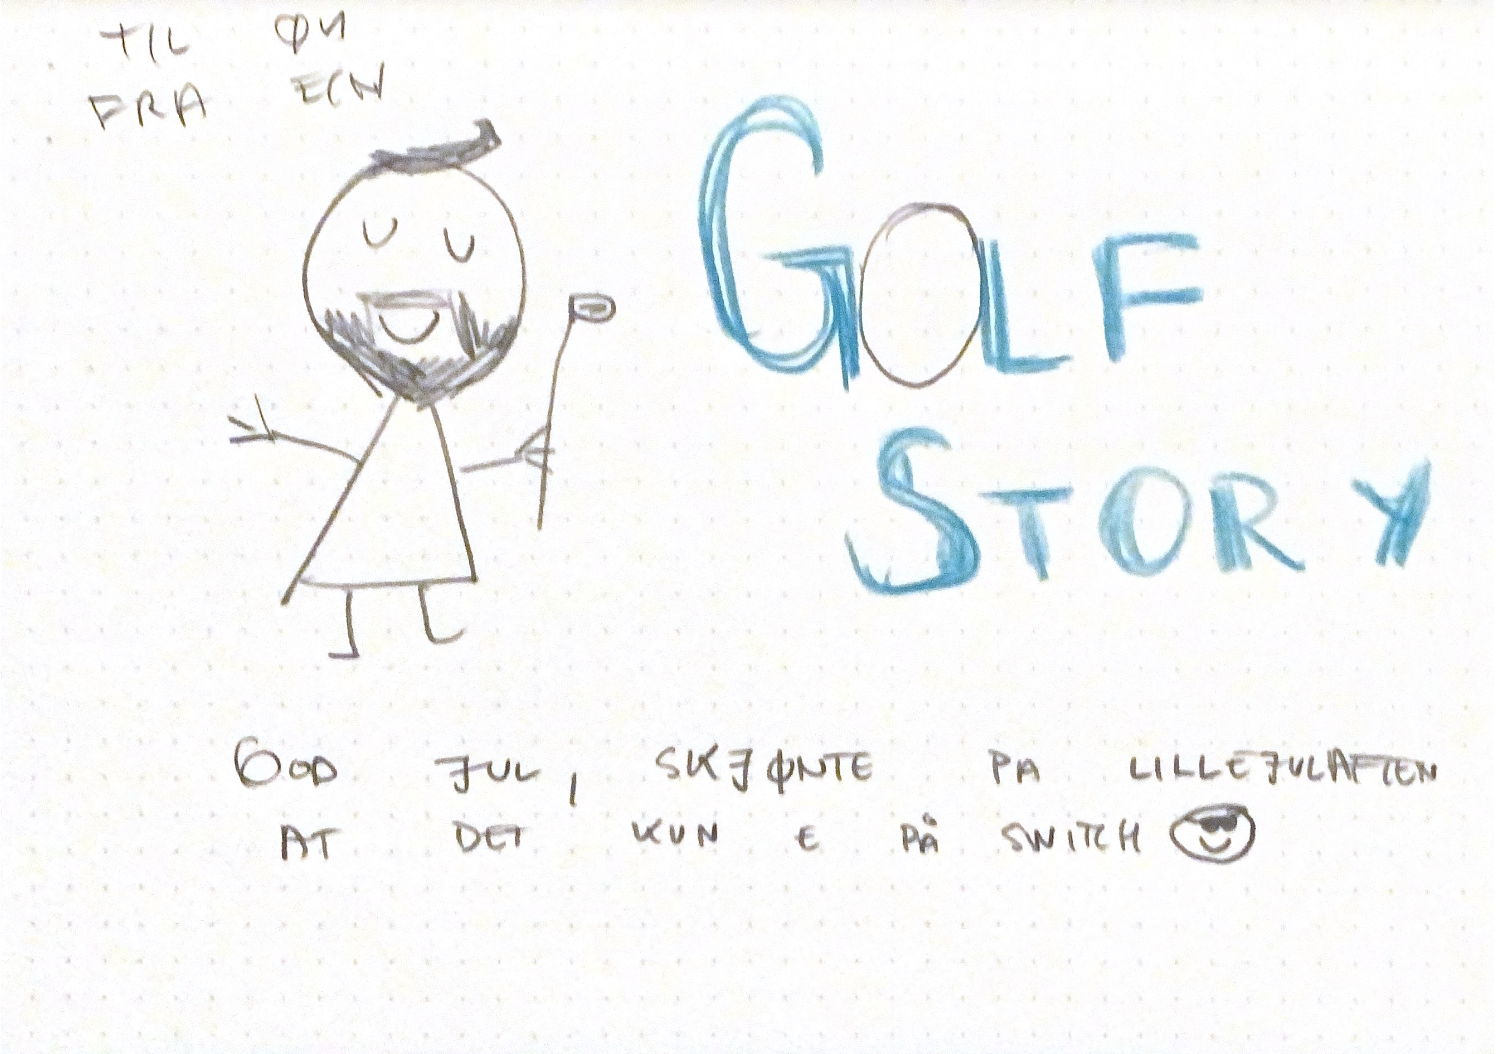 TIL ØN
FRA EIN
GOLF
STORY
GOD JUL, SKJØNTE PA LILLEJULAFTEN
AT DET KUN E PÅ SWITCH